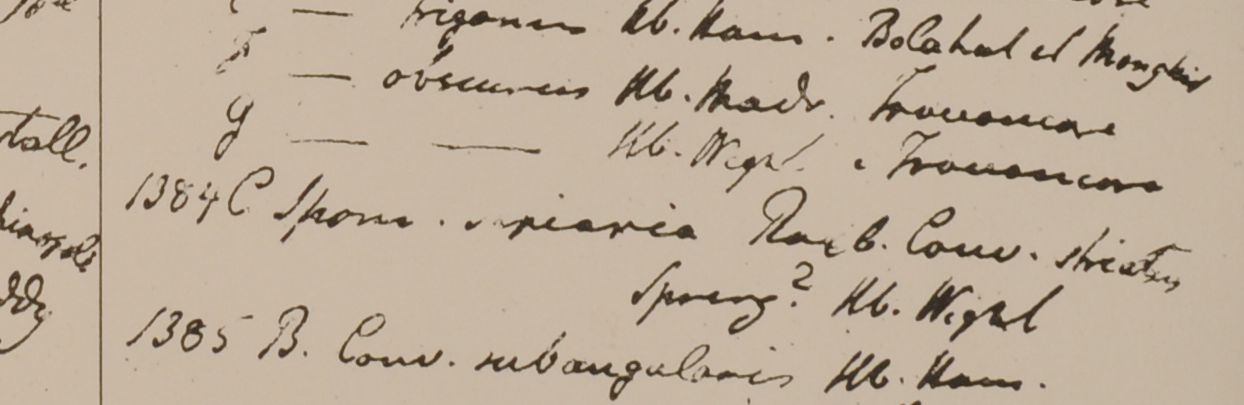 — trigonus Hb. Ham. Bolahat et Monghir
F — obscurus Hb. Madr. Travancore
tall. G — — Hb. Wight. Travancore
1384 C Ipom. sepiaria Roxb. Conv. striatus
Spreng? Hb. Wight
ddy 1385 B. Conv. subangularis Hb. Ham.